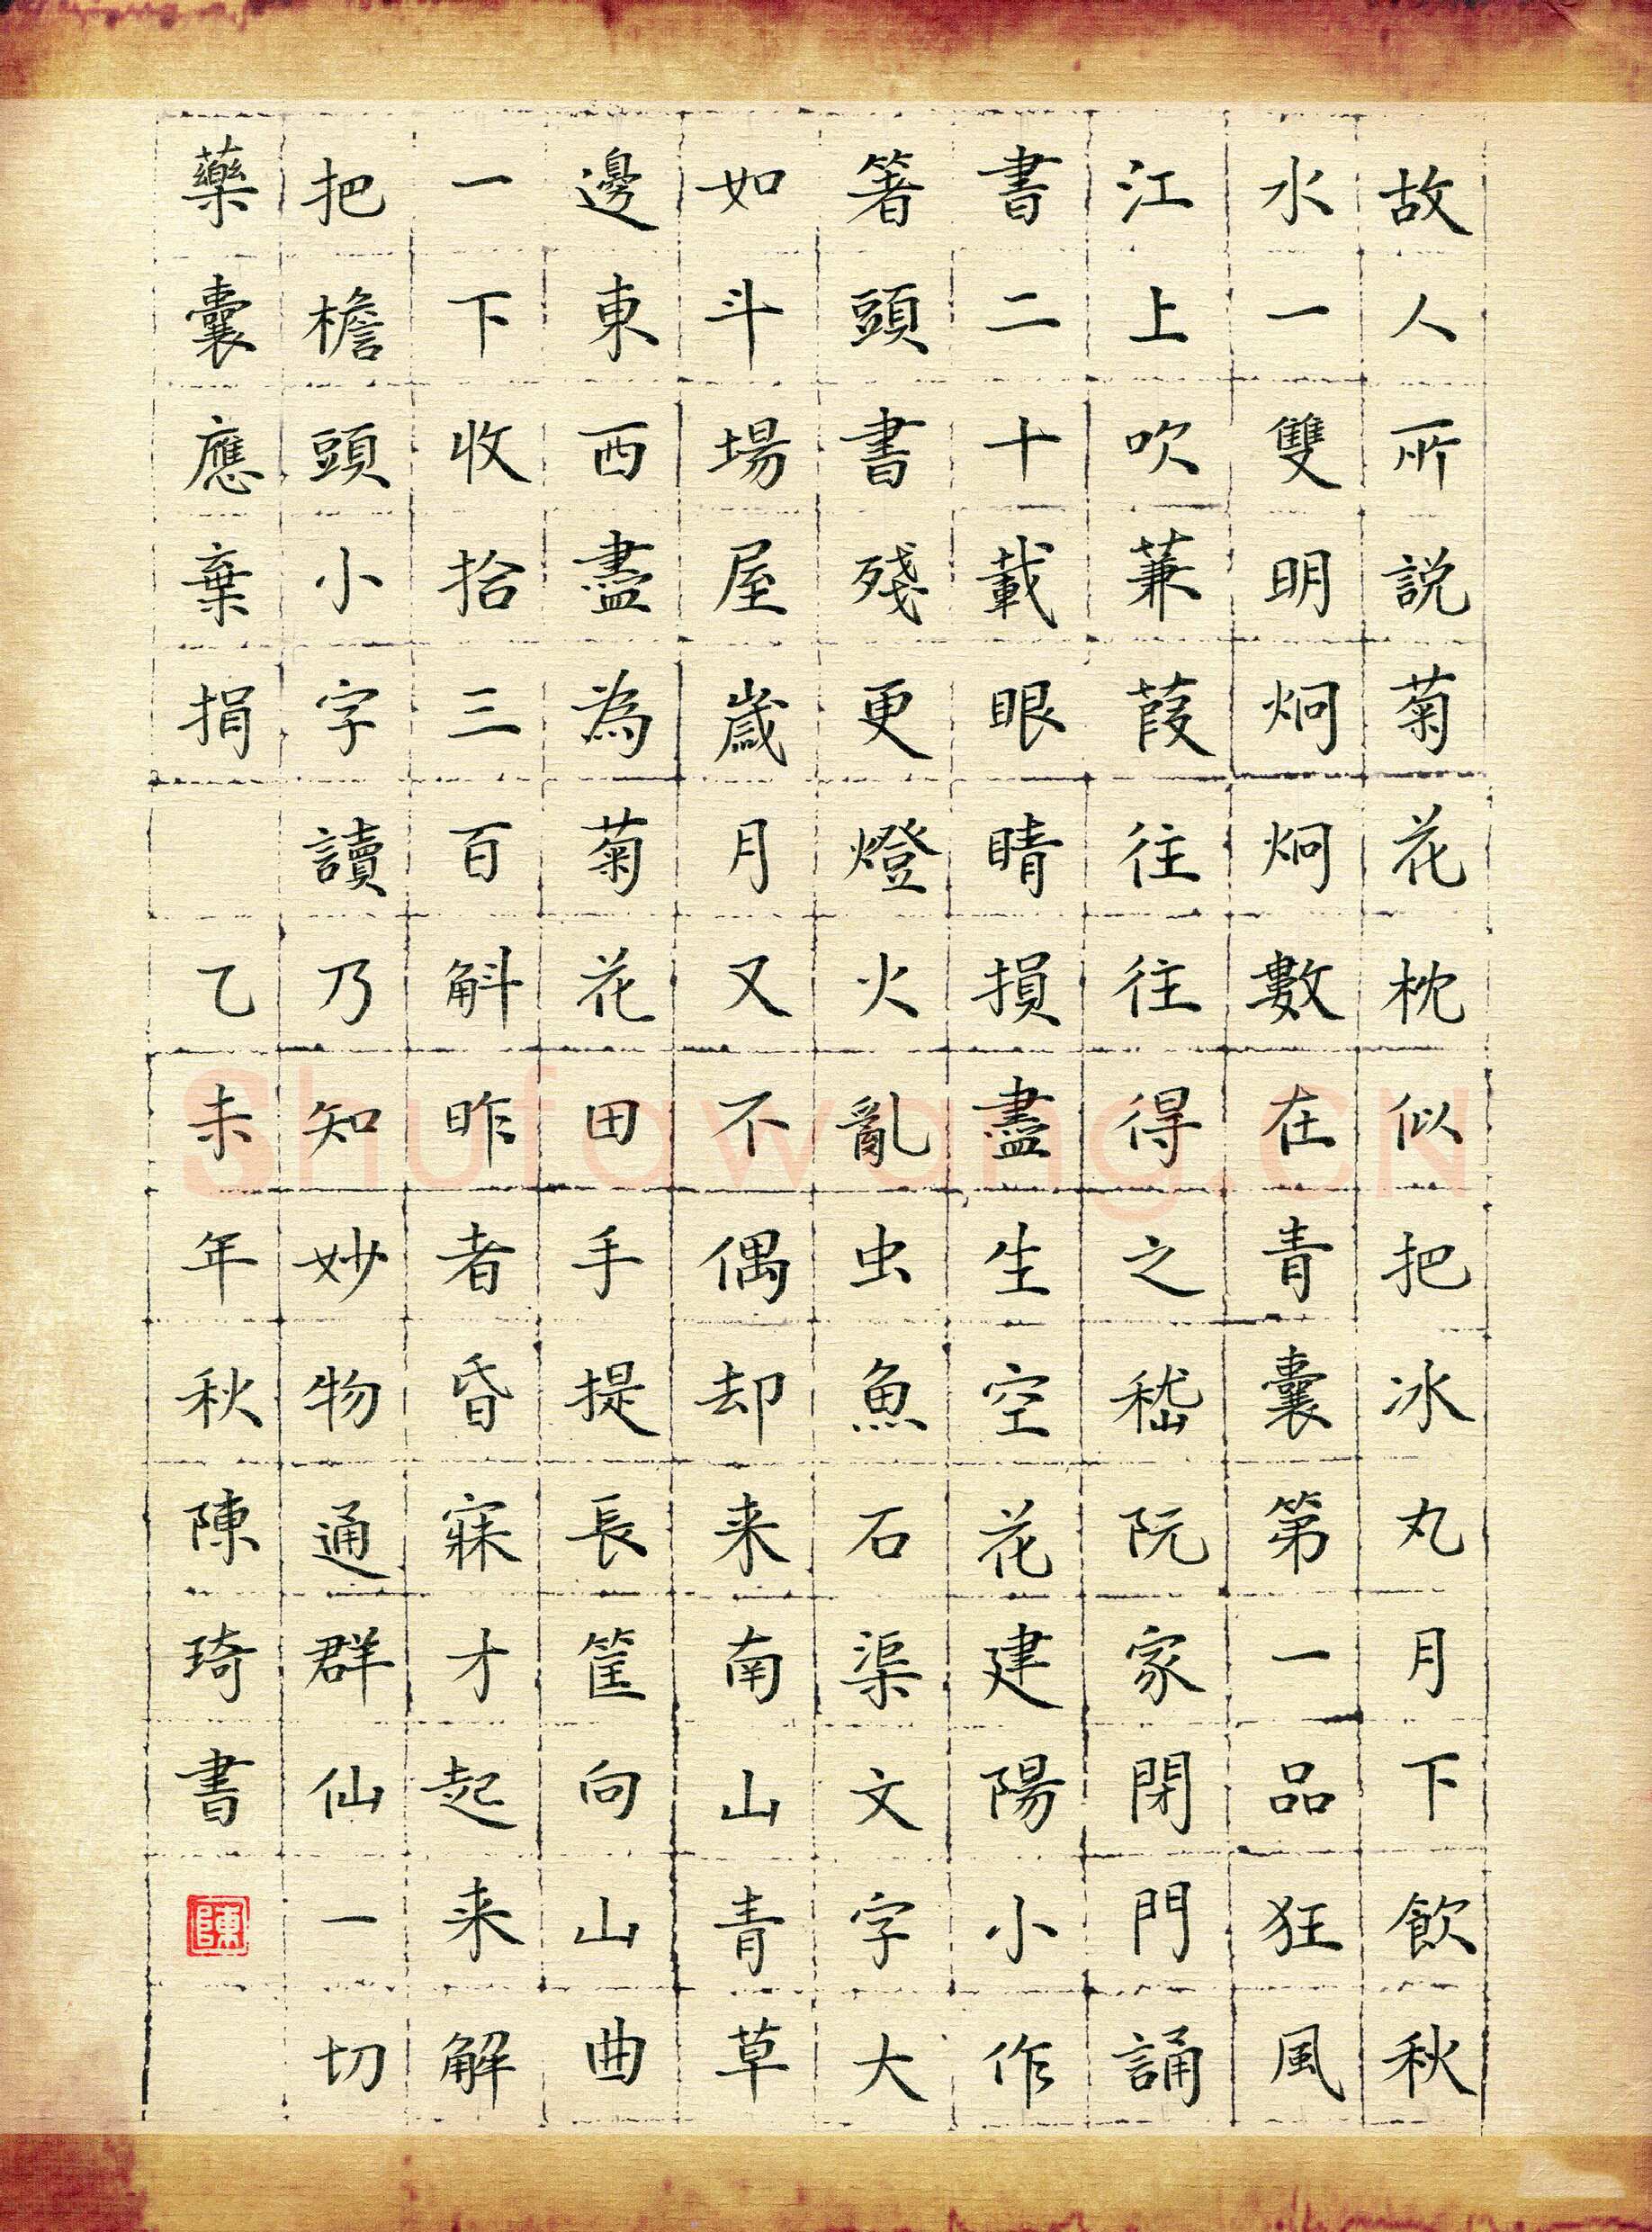 故人所説菊花枕似把冰丸月下飲秋
水一雙明炯炯數在青囊第一品狂風
江上吹蒹葭往往得之嵇阮家閉門誦
書二十載眼睛損盡生空花建陽小作
箸頭書殘更燈火亂虫魚石渠文字大
如斗場屋歲月又不偶却来南山青草
邊東西盡為菊花田手提長筐向山曲
一下收拾三百斛昨者昏寐才起来解
把檐頭小字讀乃知妙物通群仙一切
藥囊應棄捐 乙未年秋陳琦書
陳
Shufawang.CN